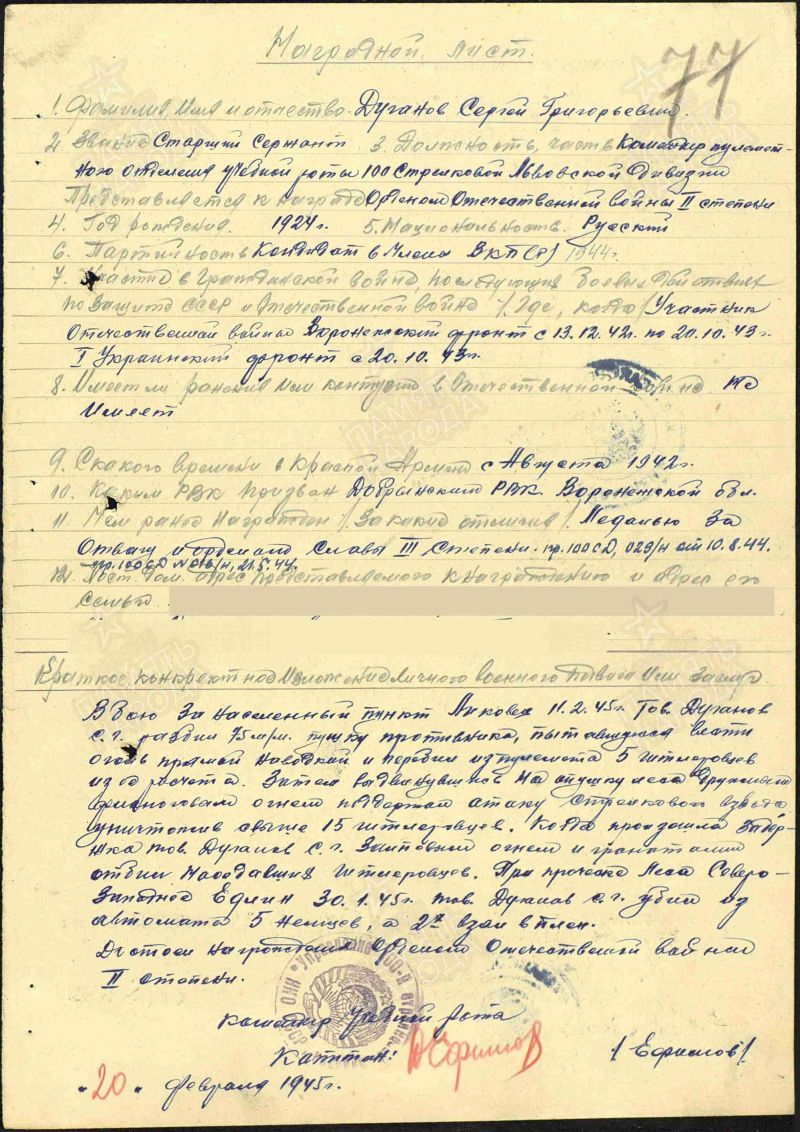 Наградной лист.
77
1. Фамилия, имя и отчество. Дуганов Сергей Григорьевич.
2. Звание Старший Сержант 3. Должность, часть Командир пулемет-
ного отделения учебной роты 100 Стрелковой Львовской Дивизии
Представляется к награде Орденом Отечественной войны II степени
4. Год рождения. 1924г. 5. Национальность. Русский
6. Партийность Кандидат в Члены ВКП(б) 1944г.
7. Участие в Гражданской войне, последующих боевых действиях
по защите СССР и Отечественной войне /где, когда/ Участник
Отечественной войны Воронежский фронт с 13.12.42г. по 20.10.43г.
I Украинский фронт с 20.10.43г.
8. Имеет ли ранения или контузии в Отечественной войне. не
имеет
9. С какого времени в Красной Армии с Августа 1942г.
10. Каким РВК призван Добрынским РВК Воронежской обл.
11. Чем ранее награжден /За какие отличия/ Медалью За
Отвагу и орденом Славы III степени. пр. 100 сД, 029/н от 10.8.44.
пр. 100 сД № 016/н, 21.5.44.
12. Пост. дом. адрес представляемого к награждению и адрес его
семьи
Краткое, конкретное изложение личного военного подвига или заслуг
В бою за населенный пункт 11.2.45г. Тов. Дуганов
С.Г. разбил 75 м/м. пушку противника, пытавшуюся вести
огонь прямой наводкой и перебил из пулемета 5 гитлеровцев
из её расчета. Затем выдвинувшись на опушку леса
огнем поддержал атаку стрелкового взвода
уничтожив свыше 15 гитлеровцев. Когда произошла задер-
жка тов. Дуганов С.Г. огнем и гранатами
отбил наседавших гитлеровцев. При проческе леса Северо-
Западнее 30.1.45г. тов. Дуганов С.Г. убил из
автомата 5 немцев, а 2х взял в плен.
Достоин награждения Орденом Отечественной войны
II степени.
Командир Учебной роты
Капитан: Ефимов /Ефимов/
"20" февраля 1945г.